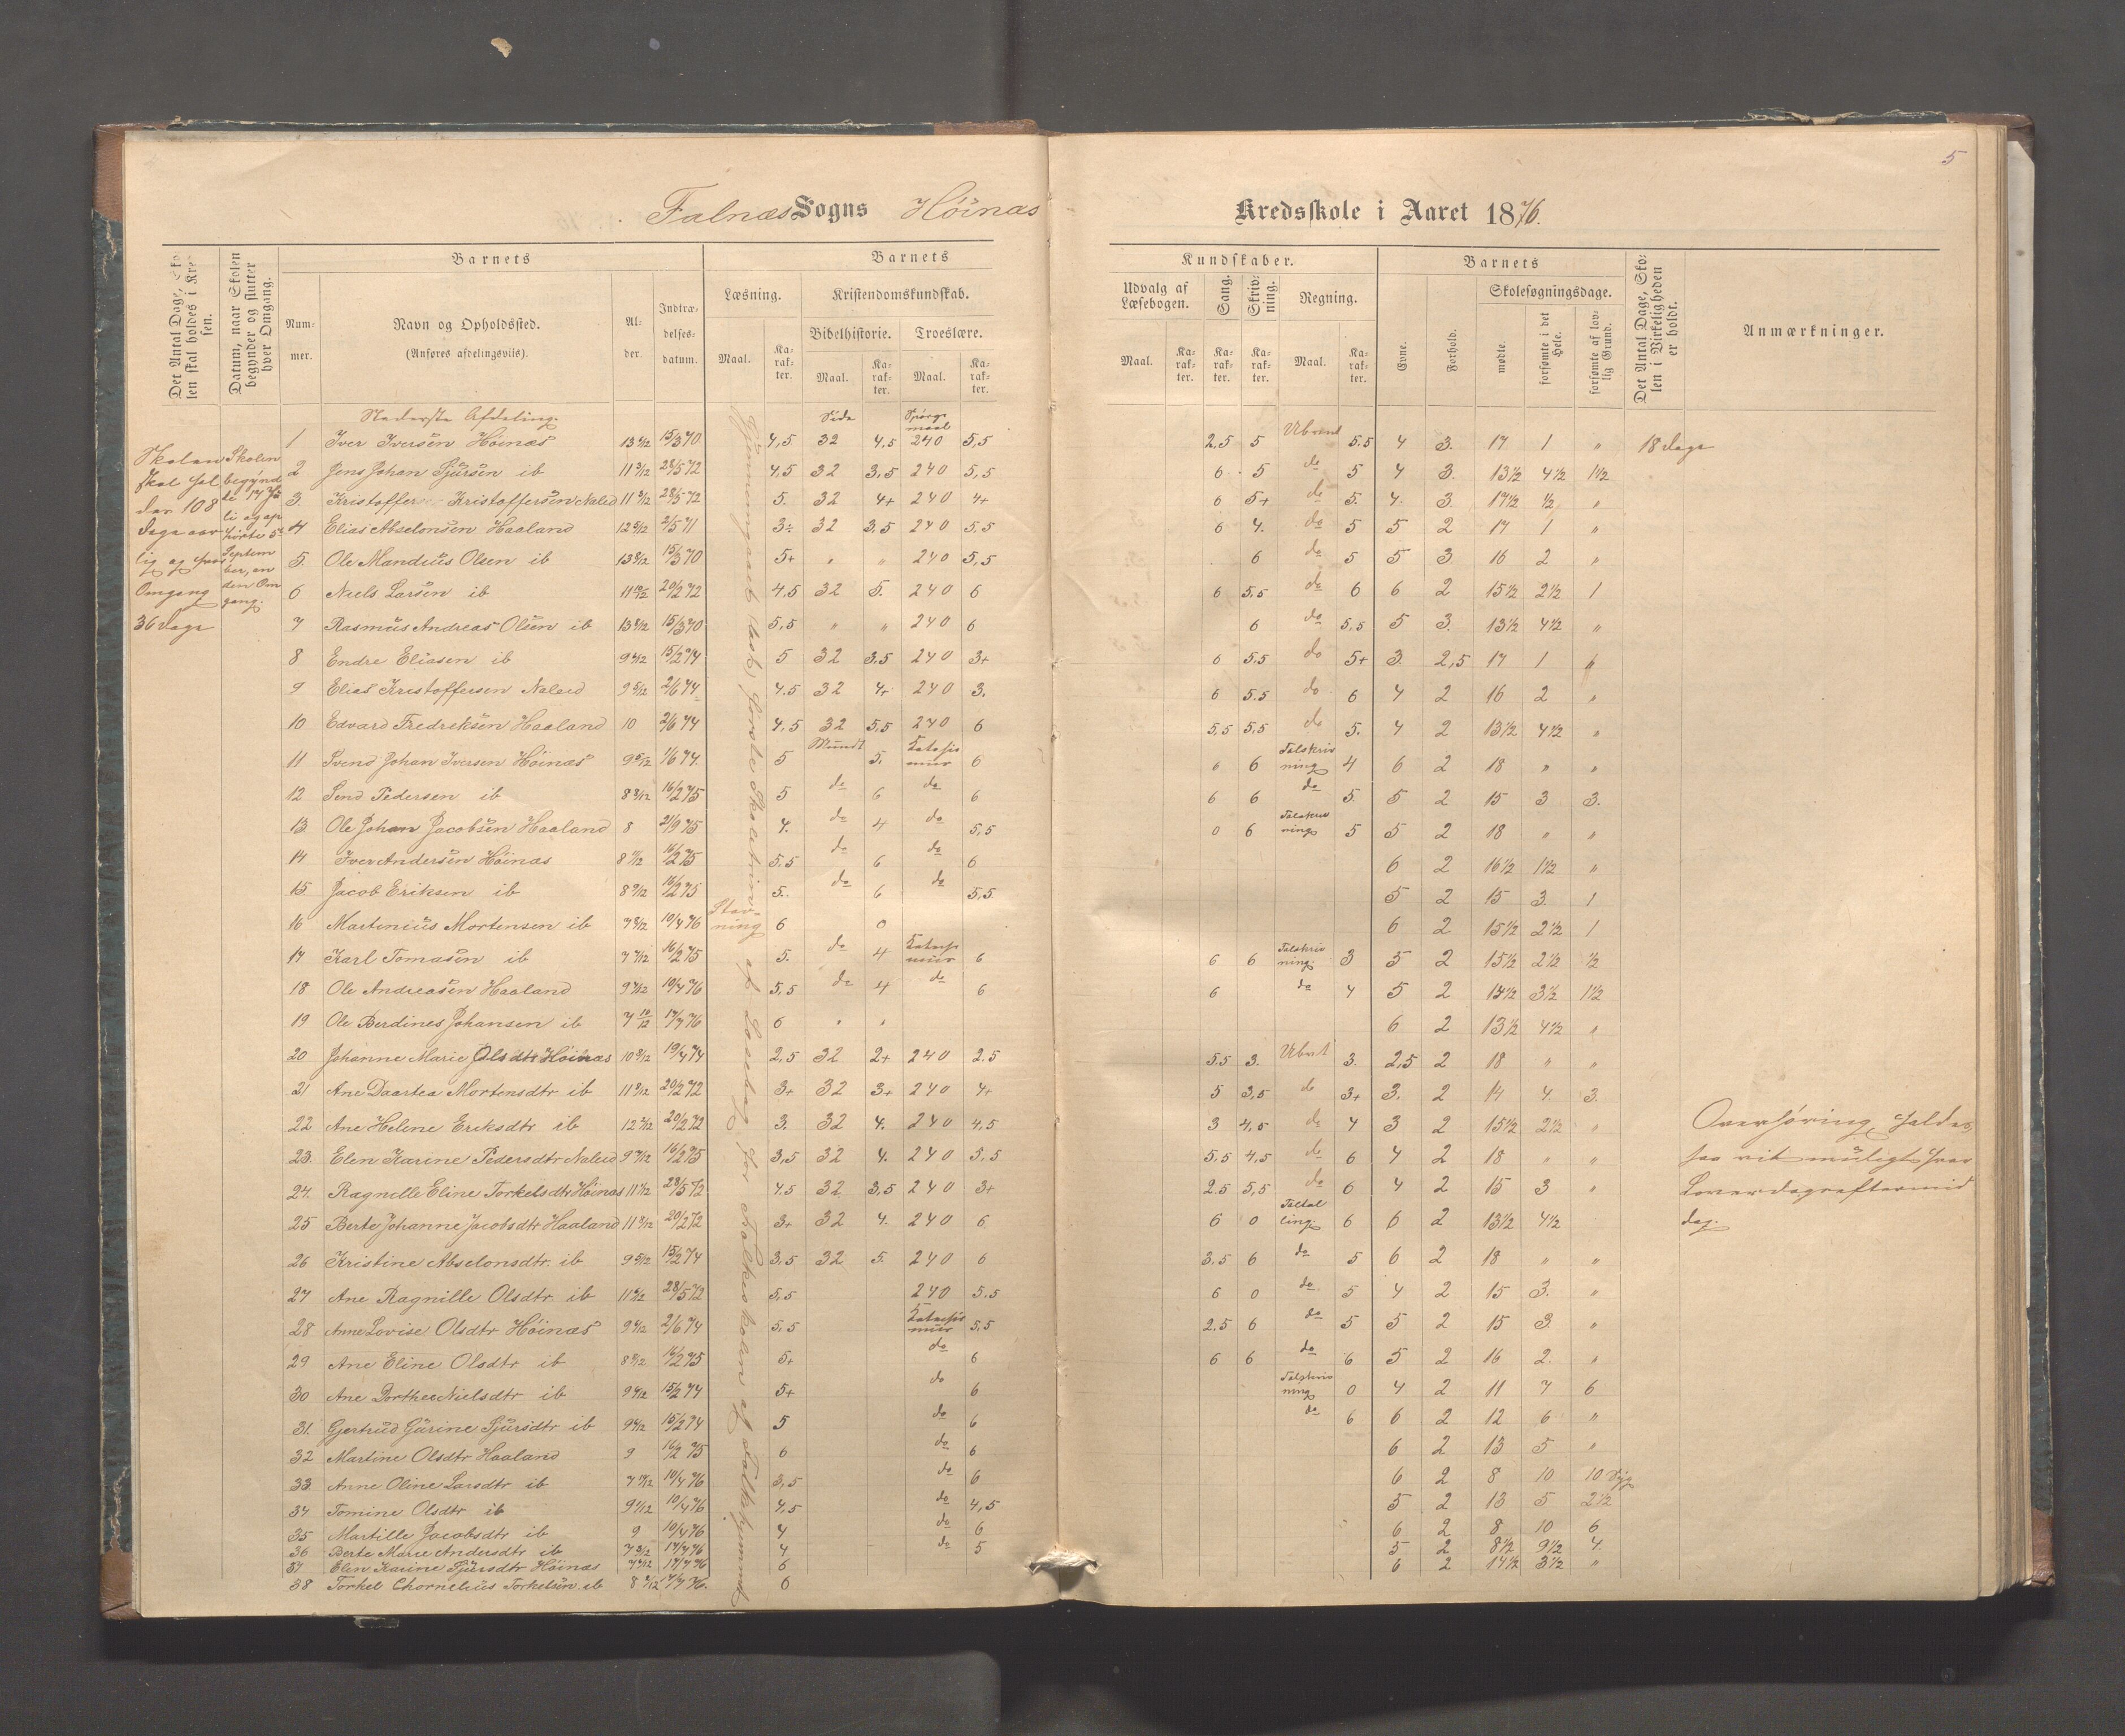 5
Falnæs Sogns Höinæs
Kredsskole i Aaret 1876.
Det Antal Dage, Skolen skal holdes i Kredsen.
Datum, naar Skolen begynder og slutter hver Omgang.
Barnets
Nummer.
Navn og Opholdssted.
(Anføres afdelingsviis).
Alder.
Indtrædelsesdatum.
Barnets
Læsning.
Kristendomskundskab.
Bibelhistorie. Troeslære.
Maal. Karakter. Maal. Karakter. Maal. Karakter.
Kundskaber.
Udvalg af Læsebogen.
Sang.
Skrivning.
Regning.
Maal. Karakter. Karakter. Karakter. Maal. Karakter.
Barnets
Evne.
Forhold.
Skolesøgningsdage.
mødte.
forsømte i det Hele.
forsømte af lovlig Grund.
Det Antal Dage, Skolen i Virkeligheden er holdt.
Anmærkninger.
Nederste Afdeling. Side Spörgsmaal
Skolen
skal hol
des 108
Dage aar
lig og hver
Omgang
36 Dage
Skolen
begynd
te 17 Ju
li og op
hörte 5te
Septem
ber, en
den Om
gang.
Gjennemgaaet (læst) første Skoletrin af Læsebog for Folkeskolen og Folkehjemmet
1 Iver Iversen Höinæs 13 4/12 15/3 70 4,5 32 4,5 240 5,5 2,5 5 Ubent 5,5 4 3. 17 1 " 18 Dage
2 Jens Johan Sjursen ib 11 3/12 28/5 72 4.5 32 3,5 240 5,5 6 5 do 5 4 3. 13 1/2 4 1/2 1 1/2
3. Kristoffer Kristoffersen Naleid 11 8/12 28/5 72 5. 32 4+ 240 4+ 6 5+ do 5. 4. 3. 17 1/2 1/2 "
4 Elias Abselonsen Haaland 12 5/12 2/5 71 3÷ 32 3,5 240 5,5 6 4. do 5 5 2 17 1 "
5. Ole Mandius Olsen ib 13 8/12 15/3 70 5+ " " 240 5,5 6 do 5 5 3 16 2 "
6 Niels Larsen ib 20/2 72 4.5 32 5. 240 6 6 5,5 do 6 6 2 15 1/2 2 1/2 1
7 Rasmus Andreas Olsen ib 13 8/12 15/3 70 5,5 " " 240 6 6 do 5,5 5 3. 13 1/2 4 1/2 "
8 Endre Eliasen ib 15/2 74 5 32 3,5 240 3+ 6 5.5 do 5+ 3. 2,5 17 1 "
9 Elias Kristoffersen Naleid 9 5/12 2/6 74 4.5 32 4+ 240 3. 6 5.5 do 6 4 2 16 2 "
10 Edvard Fredriksen Haaland 10 2/6 74 4,5 32 5,5 240 6 5,5 5,5 do 5. 4 2 13 1/2 4 1/2 "
11 Svend Johan Iversen Höinæs 1/6 74. 5 Mundt 5. Katechismus 6 6 6 Talskrivning 4 6 2 18 " "
12 Send Pedersen ib 8 8/12 16/2 75 5 do 6 do 6 6 6 do 5. 5 2 15 3 3.
13. Ole Johan Jacobsen Haaland 8 21/9 75 4. do 4 do 5,5 0 6 Talskrivning 5 5 2 18 " "
14 Iver Andersen Höinæs 16/2 75 5.5 do 6 do 6 6 2 16 1/2 1 1/2 "
15. Jacob Eriksen ib 8 9/12 16/2 75 5. do 6 do 5,5. 5 2 15 3. 1
16 Martinius Mortensen ib 7 8/12 10/4 76 Stavning 6 0 6 2 15 1/2 2 1/2 1
17 Karl Tomasen ib 7 7/12 16/2 75 5. do 4 Katechismus 6 6 6 Talskrivning 3 5 2 15 1/2 2 1/2 1/2
18 Ole Andreasen Haaland 10/4 76 5,5 do 4 do 6 6 do 4 5 2 14 1/2 3 1/2 1 1/2
19 Ole Berdines Johansen ib 7 10/12 17/7 76 6 " " 6 2 13 1/2 4 1/2 "
20 Johanne Marie Olsdtr Höinæs 10 8/12 19/4 74 2,5 32 2+ 240 2.5 5.5 3. Ubent 3. 2,5 2 18 " "
21 Ane Daartea Mortensdtr ib 11 8/12 20/2 72 3+ 32 3+ 240 4+ 5 3,5 do 3+ 3. 2 14 4. 3.
22 Ane Helene Eriksdtr ib 20/2 72 3. 32 4. 240 4,5 3 4,5 do 4 3 2 15 1/2 2 1/2 "
23. Elen Karine Pedersdtr Naleid 16/2 75 3,5 32 4. 240 5,5 5.5 4,5 do 6 4 2 18 " "
24. Ragnille Eline Torkelsdtr Höinæs 28/5 72 4.5 32 3,5 240 3+ 2.5 5,5 do 6 4 2 15 3 "
25 Berte Johanne Jacobsdtr Haaland 20/2 72 3+ 32 4. 240 6. 6 0 Taltælling 6 6 2 13 1/2 4 1/2
26 Kristine Abselonsdtr ib 9 5/12 15/2 74 3,5 32 5. 240 6 3,5 6 do 5 6 2 18 " "
27 Ane Ragnille Olsdtr ib 28/5 72 5,5 240 5.5 6 0 do 5 4 2 15 3. "
28 Anne Lovise Olsdtr Höinæs 2/6 74 5,5 Katechismus 5,5 2.5 6 do 5 5 2 15 3. "
29 Ane Eline Olsdtr ib 16/2 75 5+ do 6 6 6 do 6 5 2 16 2. "
30 Ane Dorthea Nielsdtr ib 15/2 74 5+ do 6 Talskrivning 0 4 2 11 7 6
31. Gjertrud Gurine Sjursdtr ib 15/2 74 5 do 6 do 6 6 2 12 6 "
32 Martine Olsdtr Haaland 9 16/2 75 6 do 6 6 2 13 5 "
33. Anne Oline Larsdtr ib 10/4 76 3,5 do 6 6 2 8 10 10 Syg
34 Tomine Olsdtr ib 10/4 76 4,5 do 4,5 5 2 13 5 2 1/2
35 Martille Jacobsdtr ib 9 10/4 76 4 do 6 6 2 8 10 6
36 Berte Marie Andersdtr ib 17/7 76 4 do 5 5 2 8 1/2 9 1/2 4
37 Elen Karine Sjursdtr Höinæs 17/7 76 6 6 2 14 1/2 3 1/2 "
38 Torkel Chornelius Torkelsen ib 17/7 76. 6
Overhöring holdes
saa vit muligt hver
Löverdagseftermid
dag.